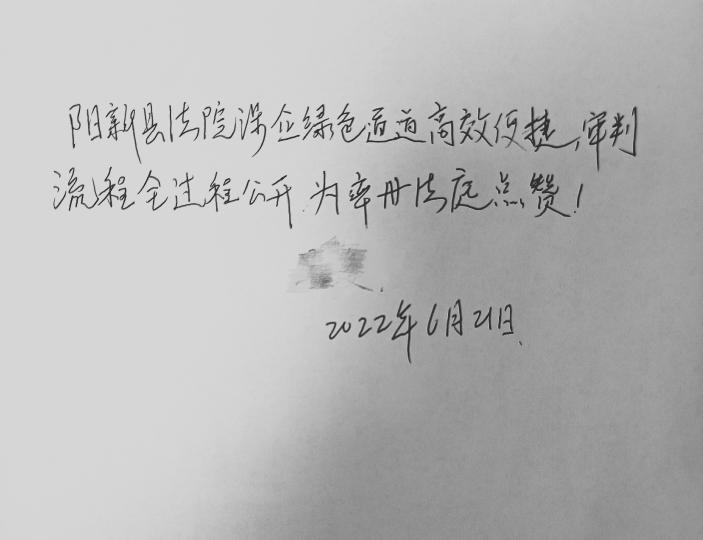 阳新县法院涉企绿色通道高效便捷,审判
流程全过程公开.为率丹法庭点赞!
2022年6月21日.